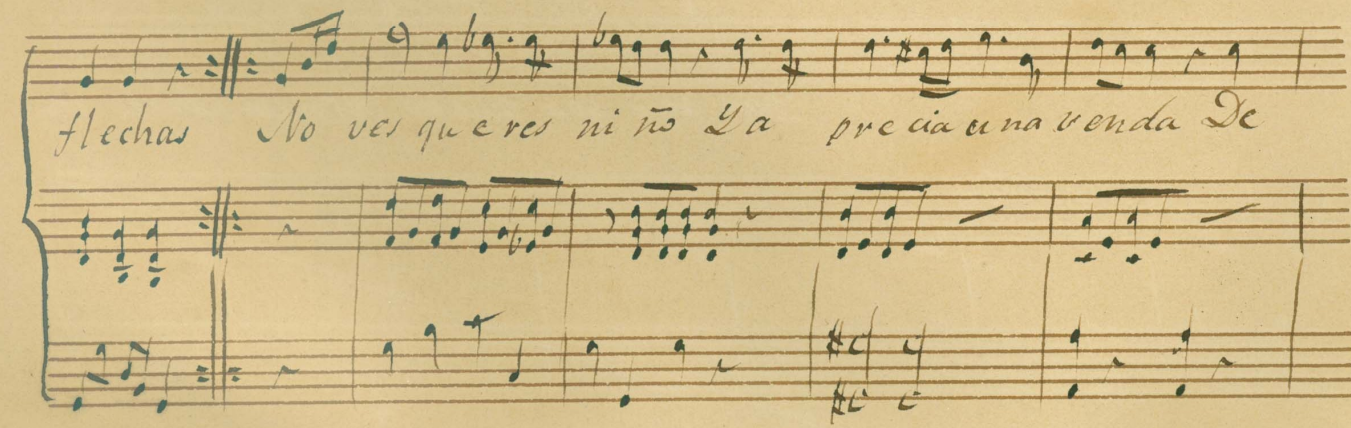 flechas No ves qu e res ni ño Y a pre cia u na venda De